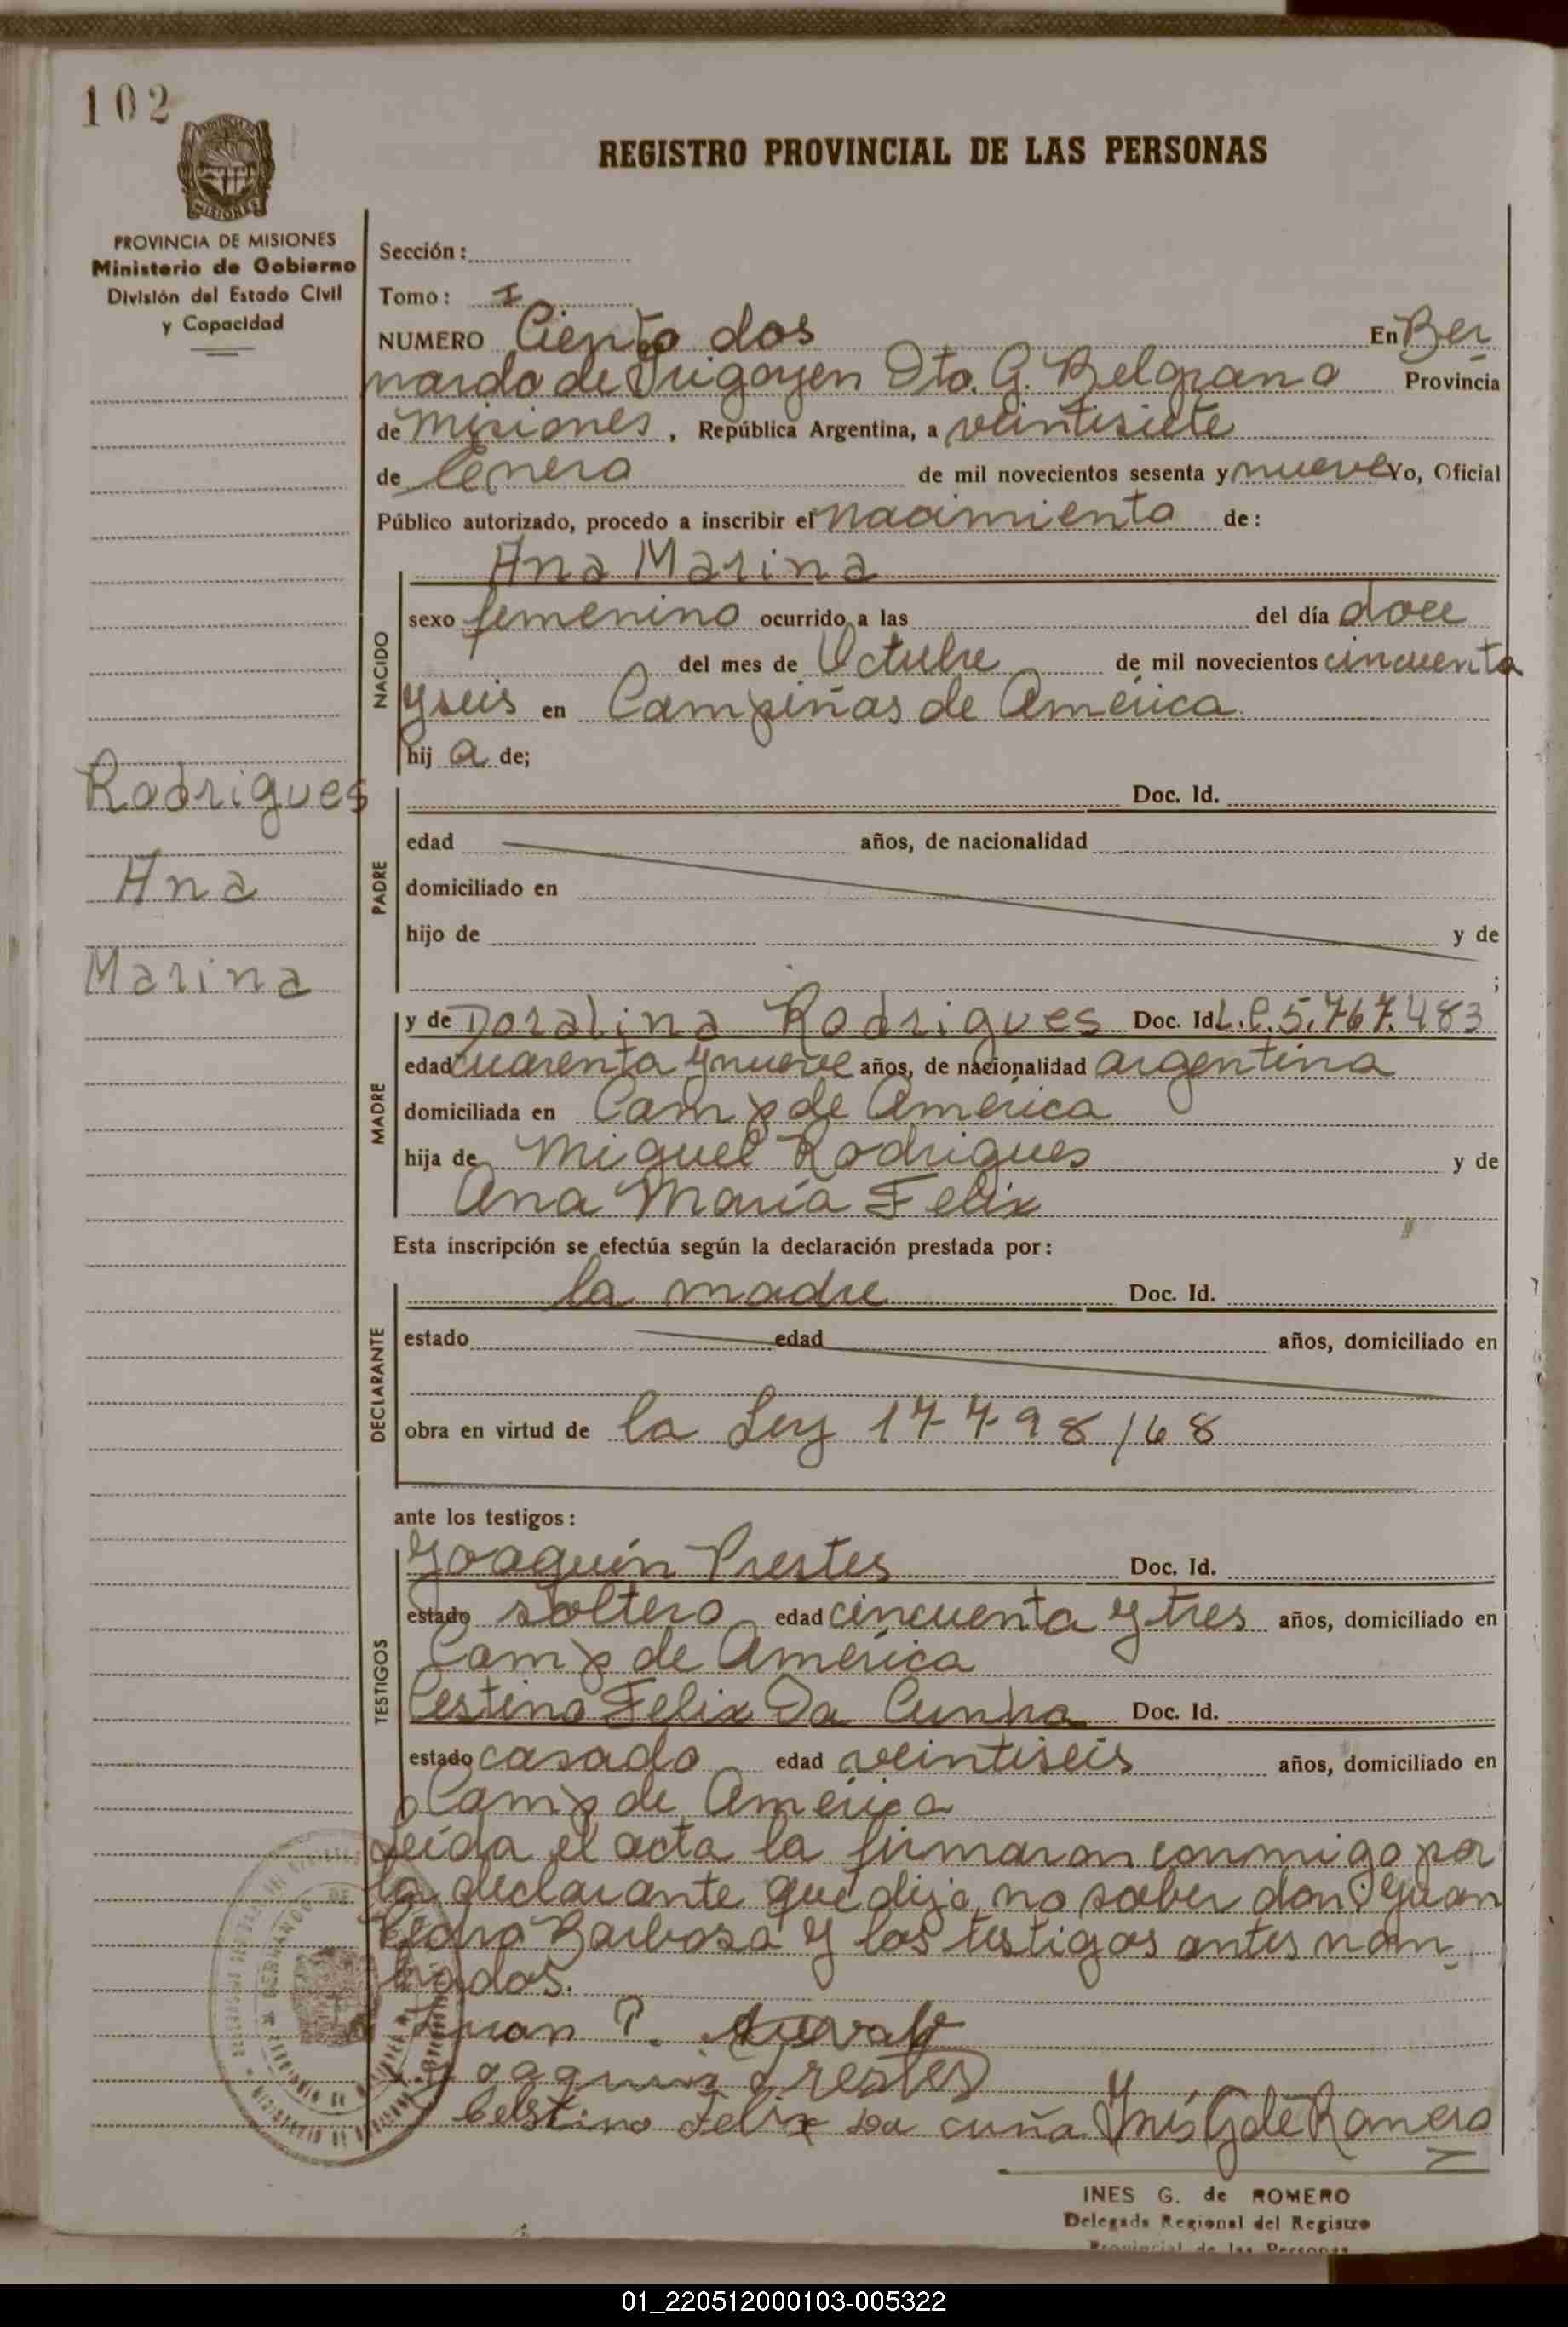 102
REGISTRO PROVINCIAL DE LAS PERSONAS
MISIONES
PROVINCIA DE MISIONES
Ministerio de Gobierno
División del Estado Civil
y Capacidad
Sección:
Tomo: I
NUMERO Ciento dos En Ber
nardo de Irigoyen Dto. G. Belgrano Provincia
de Misiones, República Argentina, a veintisiete
de Enero de mil novecientos sesenta y nueve Yo, Oficial
Público autorizado, procedo a inscribir el nacimiento de:
Ana Marina
NACIDO
sexo femenino ocurrido a las del día doce
del mes de Octubre de mil novecientos cincuenta
y seis en Campiñas de América
hij a de;
Rodrigues
Ana
Marina
PADRE
Doc. Id.
edad años, de nacionalidad
domiciliado en
hijo de y de
;
MADRE
y de Doralina Rodrigues Doc. Id. L.C. 5.767.483
edad cuarenta y nueve años, de nacionalidad argentina
domiciliada en Camp de América
hija de Miguel Rodrigues y de
Ana María Felix
Esta inscripción se efectúa según la declaración prestada por:
DECLARANTE
la madre Doc. Id.
estado edad años, domiciliado en
obra en virtud de la Ley 17798/68
ante los testigos:
TESTIGOS
Joaquín Prestes Doc. Id.
estado soltero edad cincuenta y tres años, domiciliado en
Camp de América
Cestino Felix Da Cunha Doc. Id.
estado casado edad veintiseis años, domiciliado en
Camp de América
Leída el acta la firmaron conmigo por
la declarante que dijo no saber don Juan
Pedro Barbosa y los testigos antes nom
brados.
Juan P.
Joaquin Prestes
Celstino Felix Da cuña Inés G de Romero
INES G. de ROMERO
Delegada Regional del Registro
Provincial de las Personas
01_220512000103-005322